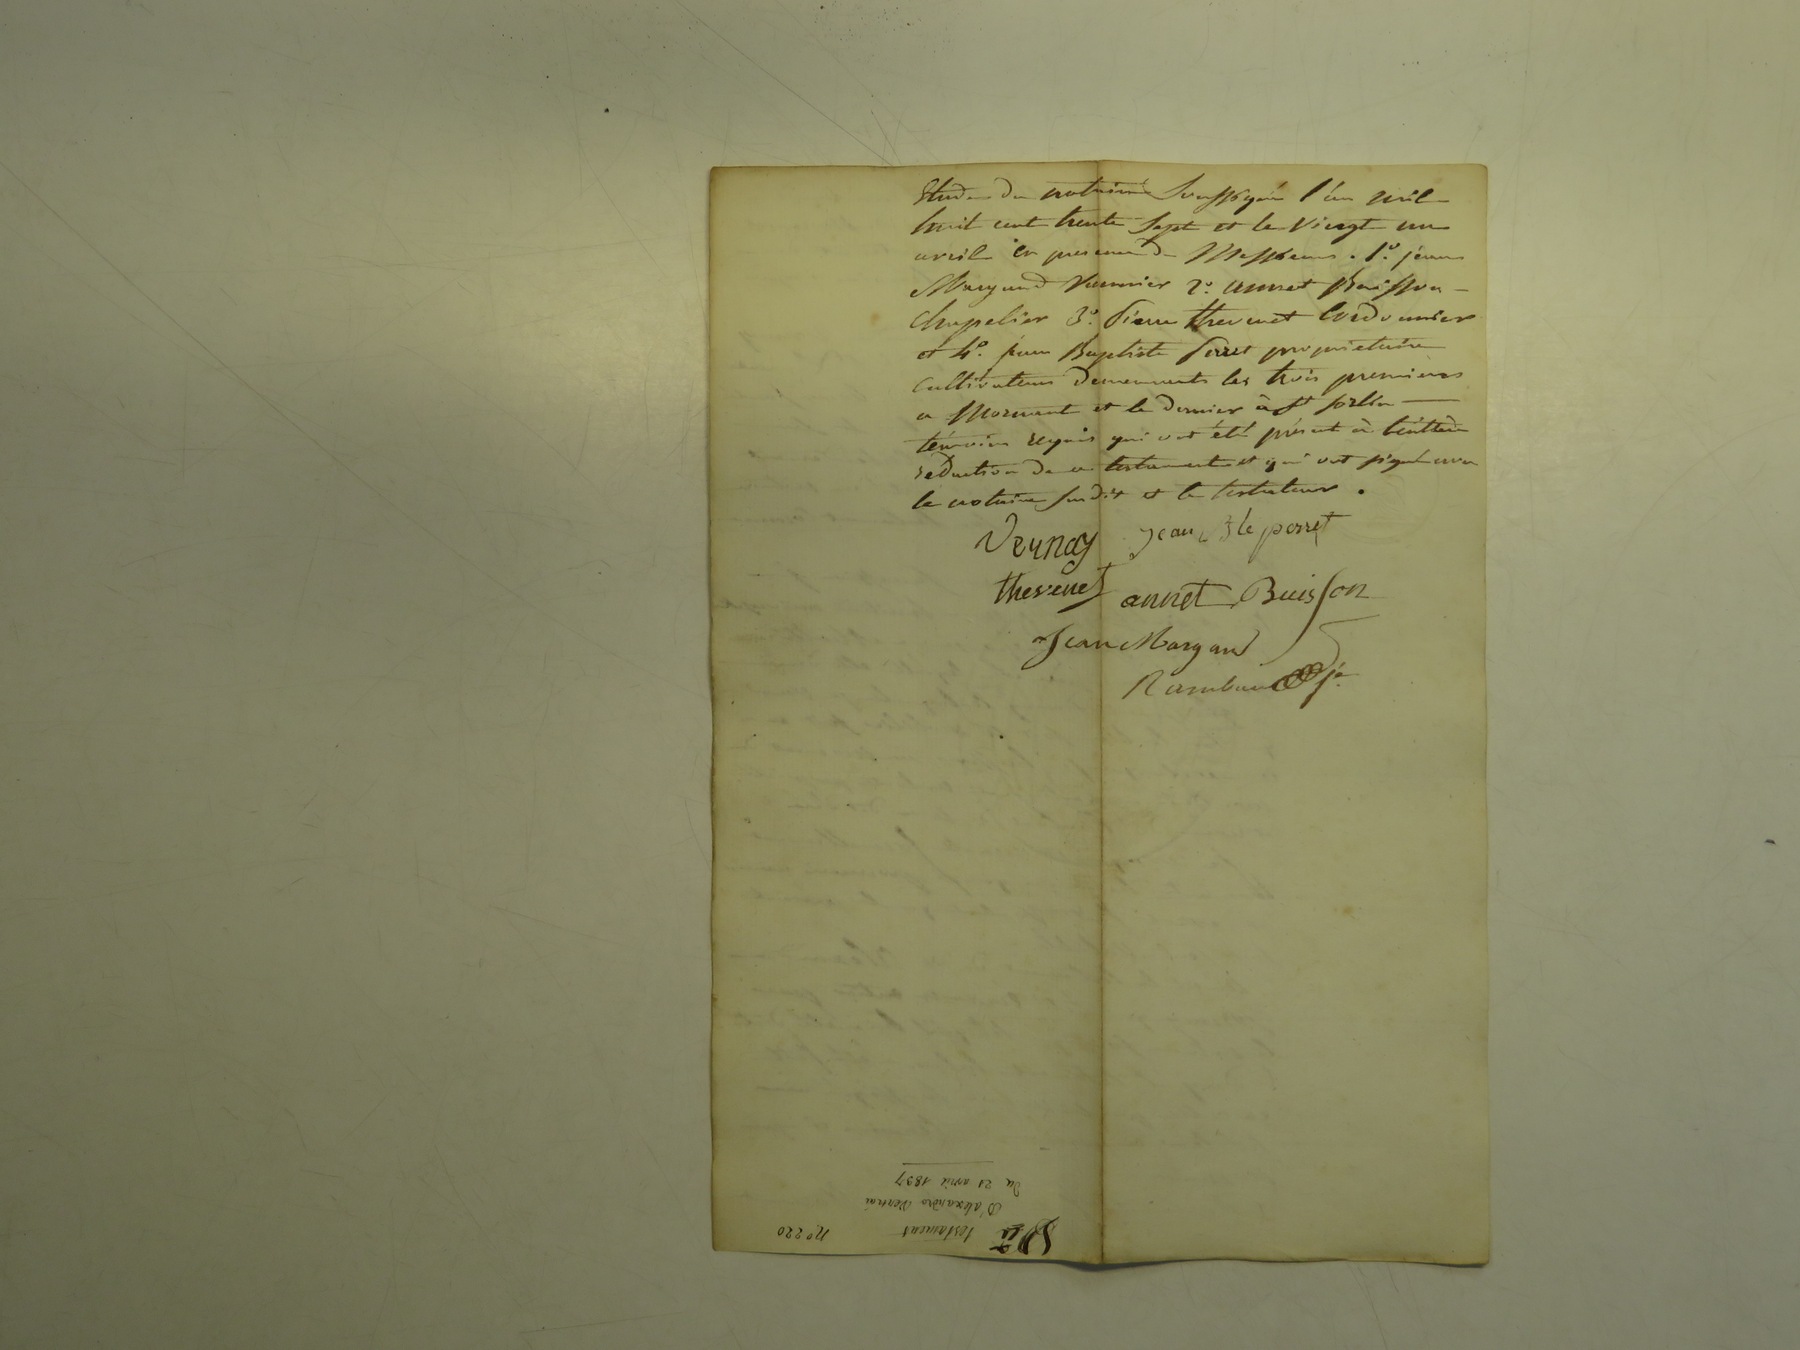 Etude du notaire soussigné l'an mil
huit cent trente sept et le vingt un
avril en presence de Messieurs . 1º. jean
Margand 2º. annet Buisson
Chapelier 3º. Pierre thevenet Cordonnier
et 4º. jean Baptiste perret proprietaire
cultivateur demeurants les trois premiers
a Mornant et le dernier à St sorlin
témoins requis qui ont été présent à l'entière
rédaction de ce testament et qui ont signé avec
le notaire susdit et le testateur .
Vernay jean Bte perret
thevenet annet Buisson
Jean Margand
Rambaud
nº 220
testament
D'alexandre Vernai
Du 21 avril 1837